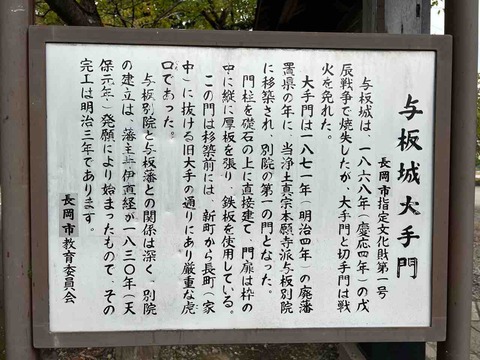 与板城大手門
長岡市指定文化財第一号
与板城は、一八六八年(慶応四年)の戊
辰戦争で焼失したが、大手門と切手門は戦
火を免れた。
大手門は一八七一年(明治四年)の廃藩
置県の年に、当浄土真宗本願寺派与板別院
に移築され、別院の第一の門となった。
門柱を礎石の上に直接建て、門扉は枠の
中に縦に厚板を張り、鉄板を使用している。
この門は移築前には、新町から長町(家
中)に抜ける旧大手の通りにあり厳重な虎
口であった。
与板別院と与板藩との関係は深く、別院
の建立は、藩主井伊直経が一八三〇年(天
保元年)発願により始まったもので、その
完工は明治三年であります。
長岡市教育委員会